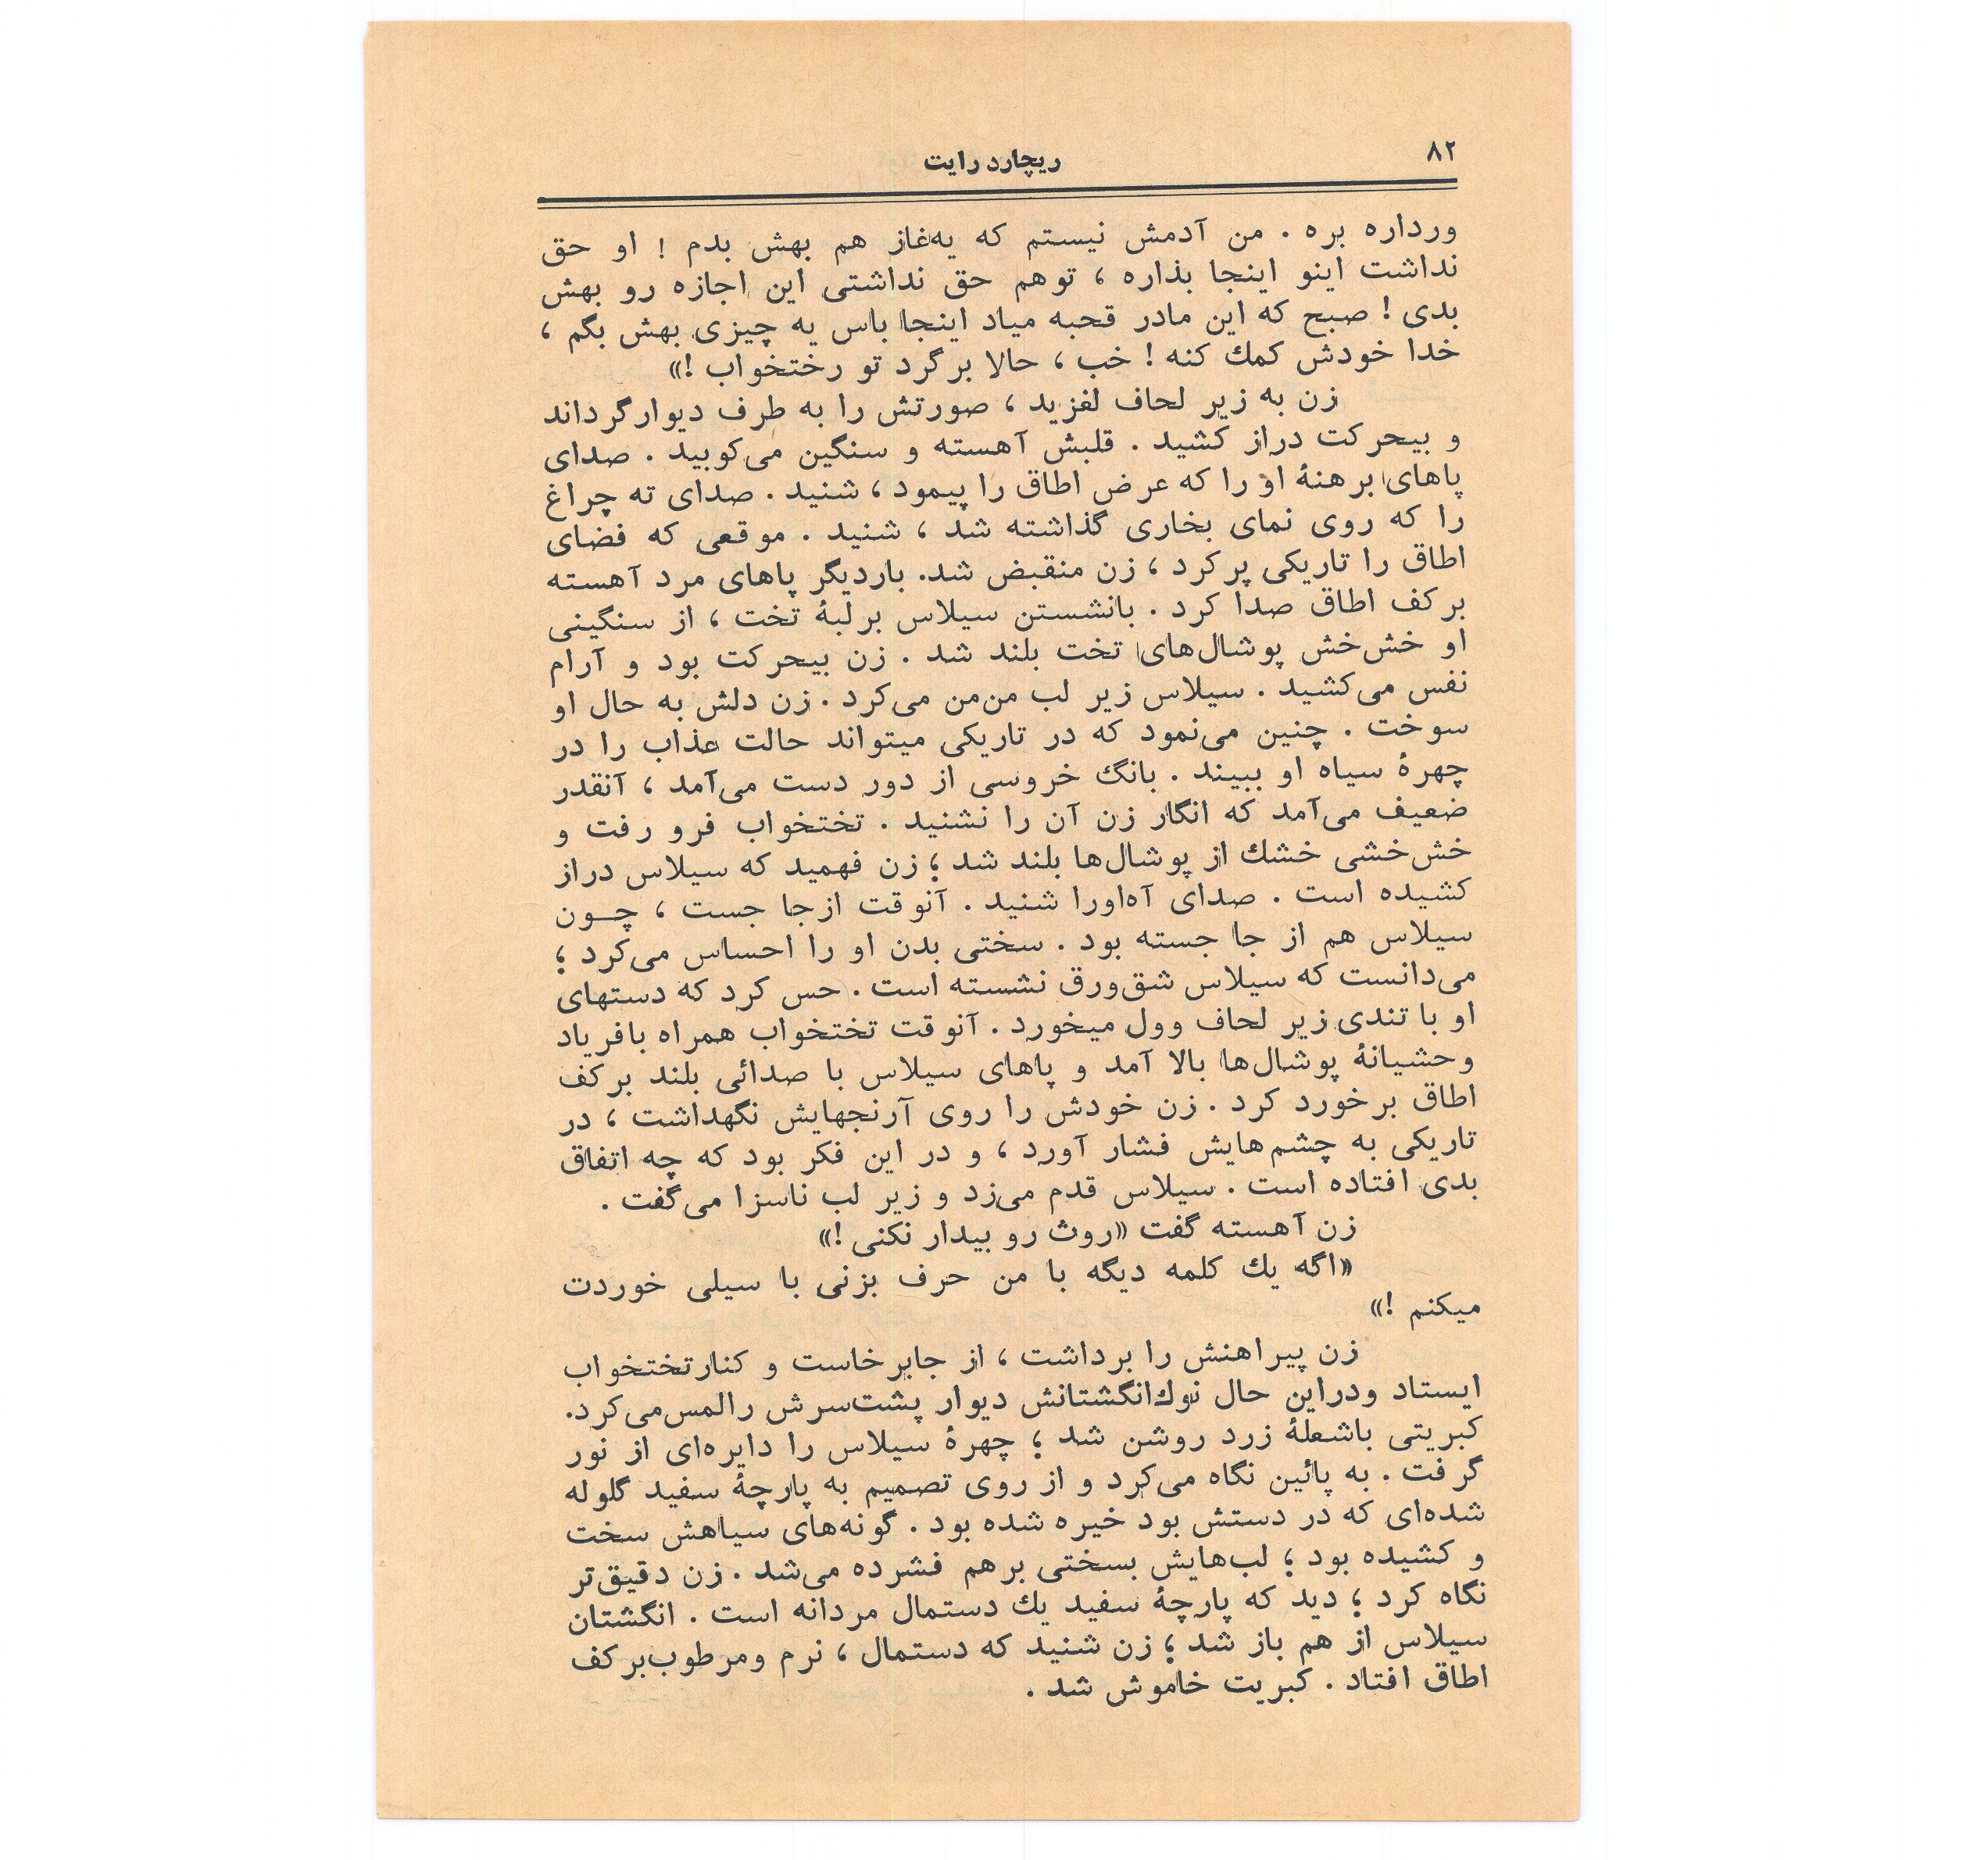 ۸۲
ریچارد رایت
ورداره بره . من آدمش نیستم که یه‌غاز هم بهش بدم ! او حق
نداشت اینو اینجا بذاره ، توهم حق نداشتی این اجازه رو بهش
بدی ! صبح که این مادر قحبه میاد اینجا باس یه چیزی بهش بگم ،
خدا خودش کمك کنه ! خب ، حالا برگرد تو رختخواب !»
زن به زیر لحاف لغزید ، صورتش را به طرف دیوارگرداند
و بیحرکت دراز کشید . قلبش آهسته و سنگین می‌کوبید . صدای
پاهای برهنهٔ او را که عرض اطاق را پیمود ، شنید . صدای ته چراغ
را که روی نمای بخاری گذاشته شد ، شنید . موقعی که فضای
اطاق را تاریکی پرکرد ، زن منقبض شد. باردیگر پاهای مرد آهسته
برکف اطاق صدا کرد . بانشستن سیلاس برلبهٔ تخت ، از سنگینی
او خش‌خش پوشال‌های تخت بلند شد . زن بیحرکت بود و آرام
نفس می‌کشید . سیلاس زیر لب من‌من می‌کرد . زن دلش به حال او
سوخت . چنین می‌نمود که در تاریکی میتواند حالت عذاب را در
چهرهٔ سیاه او ببیند . بانگ خروسی از دور دست می‌آمد ، آنقدر
ضعیف می‌آمد که انگار زن آن را نشنید . تختخواب فرو رفت و
خش‌خشی خشك از پوشال‌ها بلند شد ؛ زن فهمید که سیلاس دراز
کشیده است . صدای آه‌اورا شنید . آنوقت ازجا جست ، چــون
سیلاس هم از جا جسته بود . سختی بدن او را احساس می‌کرد ؛
می‌دانست که سیلاس شق‌ورق نشسته است . حس کرد که دستهای
او با تندی زیر لحاف وول میخورد . آنوقت تختخواب همراه بافریاد
وحشیانهٔ پوشال‌ها بالا آمد و پاهای سیلاس با صدائی بلند برکف
اطاق برخورد کرد . زن خودش را روی آرنجهایش نگهداشت ، در
تاریکی به چشم‌هایش فشار آورد ، و در این فکر بود که چه اتفاق
بدی افتاده است . سیلاس قدم می‌زد و زیر لب ناسزا می‌گفت .
زن آهسته گفت «روث رو بیدار نکنی !»
«اگه یك کلمه دیگه با من حرف بزنی با سیلی خوردت
میکنم !»
زن پیراهنش را برداشت ، از جابرخاست و کنارتختخواب
ایستاد ودراین حال نوك‌انگشتانش دیوار پشت‌سرش رالمس‌می‌کرد.
کبریتی باشعلهٔ زرد روشن شد ؛ چهرهٔ سیلاس را دایره‌ای از نور
گرفت . به پائین نگاه می‌کرد و از روی تصمیم به پارچهٔ سفید گلوله
شده‌ای که در دستش بود خیره شده بود . گونه‌های سیاهش سخت
و کشیده بود ؛ لب‌هایش بسختی برهم فشرده می‌شد . زن دقیق‌تر
نگاه کرد ؛ دید که پارچهٔ سفید یك دستمال مردانه است . انگشتان
سیلاس از هم باز شد ؛ زن شنید که دستمال ، نرم ومرطوب‌برکف
اطاق افتاد . کبریت خاموش شد .